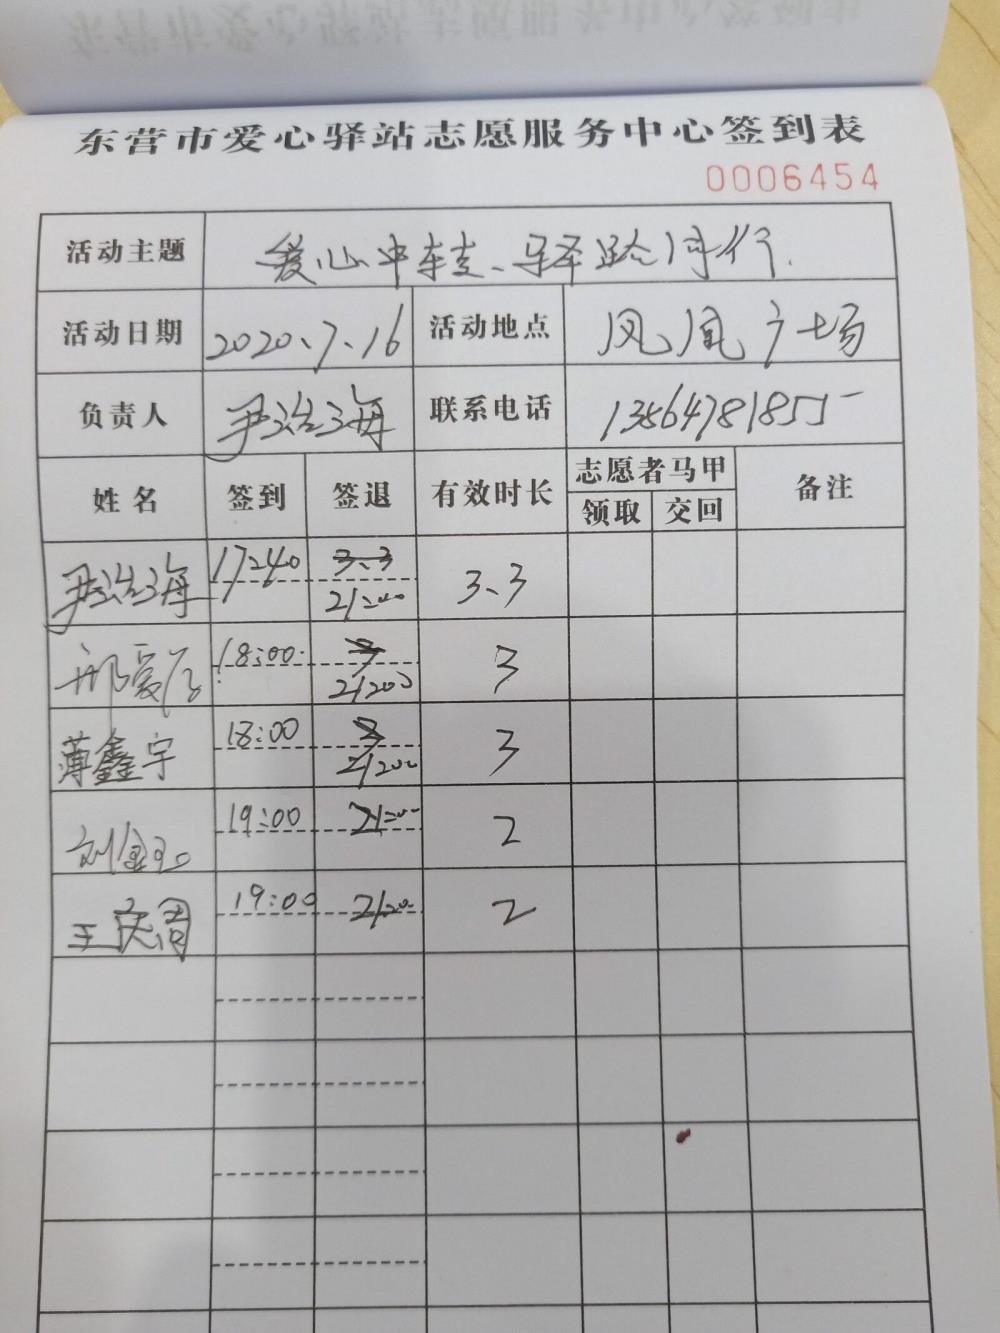 东营市爱心驿站志愿服务中心签到表
0006454
活动主题 爱心中转、驿路同行.
活动日期 2020、7、16 活动地点 凤凰广场
负责人 尹浩海 联系电话 13864781855
姓名 签到 签退 有效时长 志愿者马甲 备注
领取 交回
尹浩海 17:40 3.3 21:00 3、3
邢爱 18:00 3 21:00 3
薄鑫宇 18:00 3 21:00 3
刘 19:00 21:00 2
王庆周 19:00 21:00 2